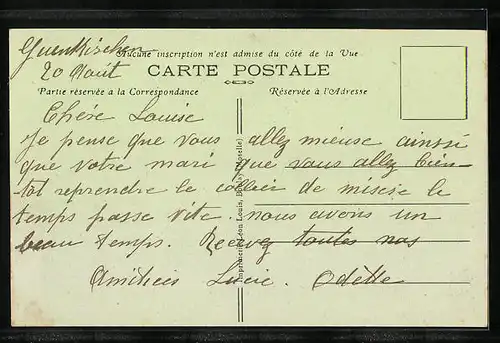 Guenkirschen
20 Août
Aucune inscription n'est admise du côté de la Vue
CARTE POSTALE
Partie réservée a la Correspondance
Réservée à l'Adresse
Chére Louise
Je pense que vous allez mieuse ainssi
que votre mari que vous allez bien-
tot reprendre le collier de misère le
temps passe vite. nous avons un
beau temps. Recevez toutes nos
Amitiées Lucie. Odette
Imprimerie Léon Louis, (Moselle)